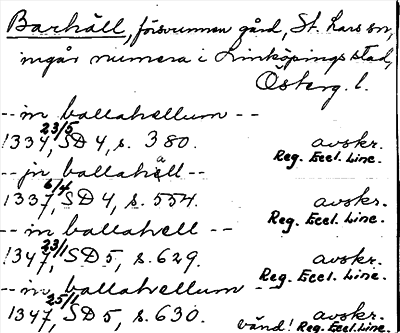 Barhäll, försvunnen gård, St. Lars sn,
ingår numera i Linköpings stad,
Österg. l.
-- in ballahellum --
1334 23/5, SD 4, s. 380. avskr.
Reg. Eccl. Linc.
-- jn ballahäll --
1337 6/4, SD 4, s. 554. avskr.
Reg. Eccl. Linc.
-- in ballahell --
1347 23/1, SD 5, s. 629. avskr.
Reg. Eccl. Linc.
-- in ballahellum --
1347 25/1, SD 5, s. 630. avskr.
vänd! Reg. Eccl. Linc.